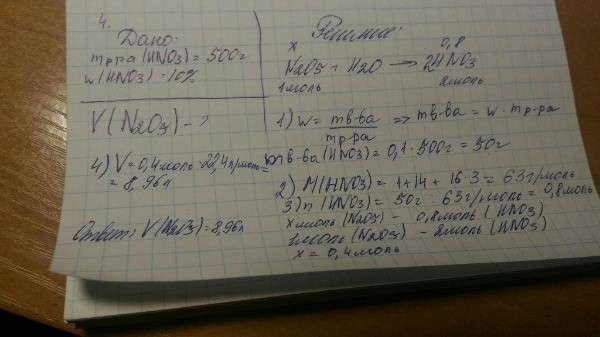 4.
Дано:
mр-ра (HNO3) = 500г
w(HNO3) = 10%
V(N2O5) - ?
4) V = 0,4моль · 22,4л/моль =
= 8,96л
Ответ: V(N2O5) = 8,96л
Решение:
x 0,8
N2O5 + H2O → 2HNO3
1моль 2моль
1) w = mв-ва / mр-ра => mв-ва = w · mр-ра
mв-ва (HNO3) = 0,1 · 500г = 50г
2) M(HNO3) = 1+14+16·3 = 63г/моль
3) n(HNO3) = 50г : 63г/моль = 0,8моль
x моль (N2O5) - 0,8моль (HNO3)
1моль (N2O5) - 2моль (HNO3)
x = 0,4моль